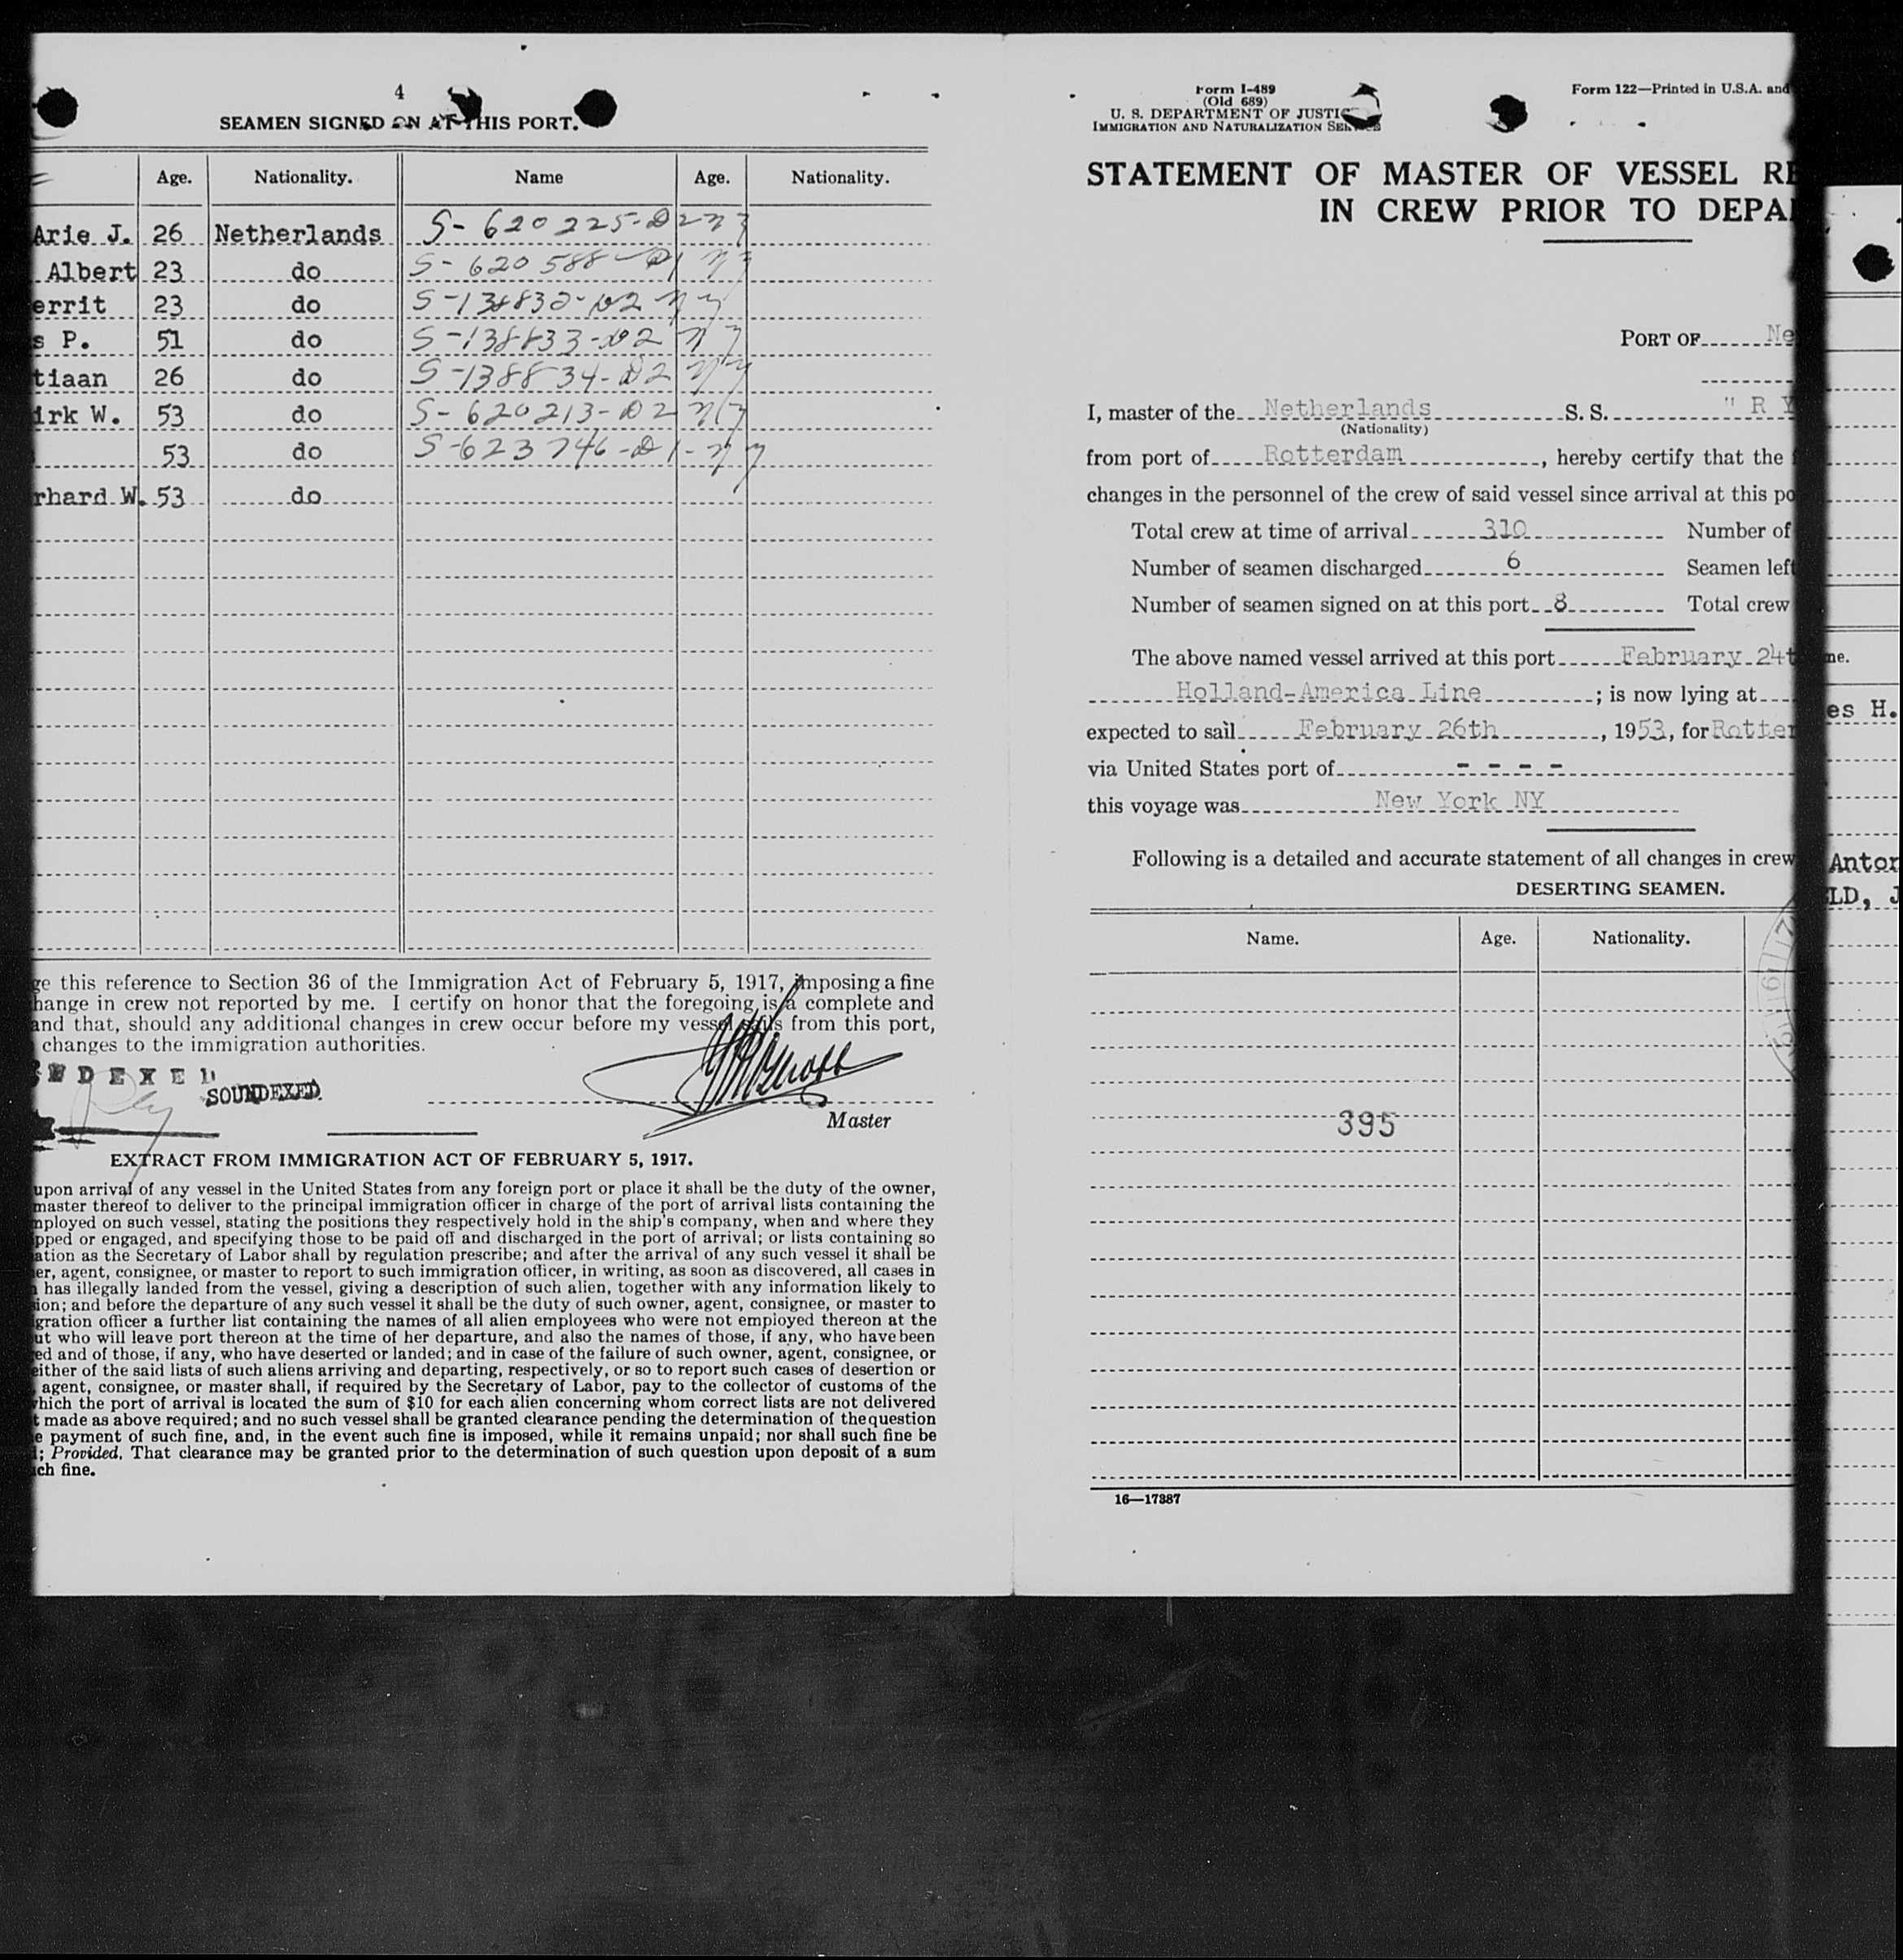 4
SEAMEN SIGNED ON AT THIS PORT.
Age. Nationality. Name Age. Nationality.
Arie J. 26 Netherlands S-620225-D2 NY
Albert 23 do S-620588-D1 NY
errit 23 do S-138832-D2 NY
s P. 51 do S-138833-D2 NY
tiaan 26 do S-138834-D2 NY
irk W. 53 do S-620213-D2 NY
53 do S-623746-D1-NY
rhard W. 53 do
ge this reference to Section 36 of the Immigration Act of February 5, 1917, imposing a fine
hange in crew not reported by me. I certify on honor that the foregoing is a complete and
and that, should any additional changes in crew occur before my vessel sails from this port,
changes to the immigration authorities.
NDEXED
SOUNDEXED
Master
EXTRACT FROM IMMIGRATION ACT OF FEBRUARY 5, 1917.
upon arrival of any vessel in the United States from any foreign port or place it shall be the duty of the owner,
master thereof to deliver to the principal immigration officer in charge of the port of arrival lists containing the
mployed on such vessel, stating the positions they respectively hold in the ship's company, when and where they
pped or engaged, and specifying those to be paid off and discharged in the port of arrival; or lists containing so
ation as the Secretary of Labor shall by regulation prescribe; and after the arrival of any such vessel it shall be
er, agent, consignee, or master to report to such immigration officer, in writing, as soon as discovered, all cases in
has illegally landed from the vessel, giving a description of such alien, together with any information likely to
ion; and before the departure of any such vessel it shall be the duty of such owner, agent, consignee, or master to
gration officer a further list containing the names of all alien employees who were not employed thereon at the
ut who will leave port thereon at the time of her departure, and also the names of those, if any, who have been
ed and of those, if any, who have deserted or landed; and in case of the failure of such owner, agent, consignee, or
either of the said lists of such aliens arriving and departing, respectively, or so to report such cases of desertion or
agent, consignee, or master shall, if required by the Secretary of Labor, pay to the collector of customs of the
which the port of arrival is located the sum of $10 for each alien concerning whom correct lists are not delivered
t made as above required; and no such vessel shall be granted clearance pending the determination of the question
e payment of such fine, and, in the event such fine is imposed, while it remains unpaid; nor shall such fine be
; Provided, That clearance may be granted prior to the determination of such question upon deposit of a sum
ch fine.
Form I-489
(Old 689)
U. S. DEPARTMENT OF JUSTIC
IMMIGRATION AND NATURALIZATION SERVICE
Form 122—Printed in U.S.A. and
STATEMENT OF MASTER OF VESSEL RE
IN CREW PRIOR TO DEPA
PORT OF Ne
I, master of the Netherlands S. S. " R Y
(Nationality)
from port of Rotterdam, hereby certify that the
changes in the personnel of the crew of said vessel since arrival at this po
Total crew at time of arrival 310 Number of
Number of seamen discharged 6 Seamen left
Number of seamen signed on at this port 8 Total crew
The above named vessel arrived at this port February 24t
Holland-America Line ; is now lying at
expected to sail February 26th, 1953, for Rotter
via United States port of - - - -
this voyage was New York NY
Following is a detailed and accurate statement of all changes in crew
DESERTING SEAMEN.
Name. Age. Nationality.
395
16—17387
me.
es H.
Anton
LD, J